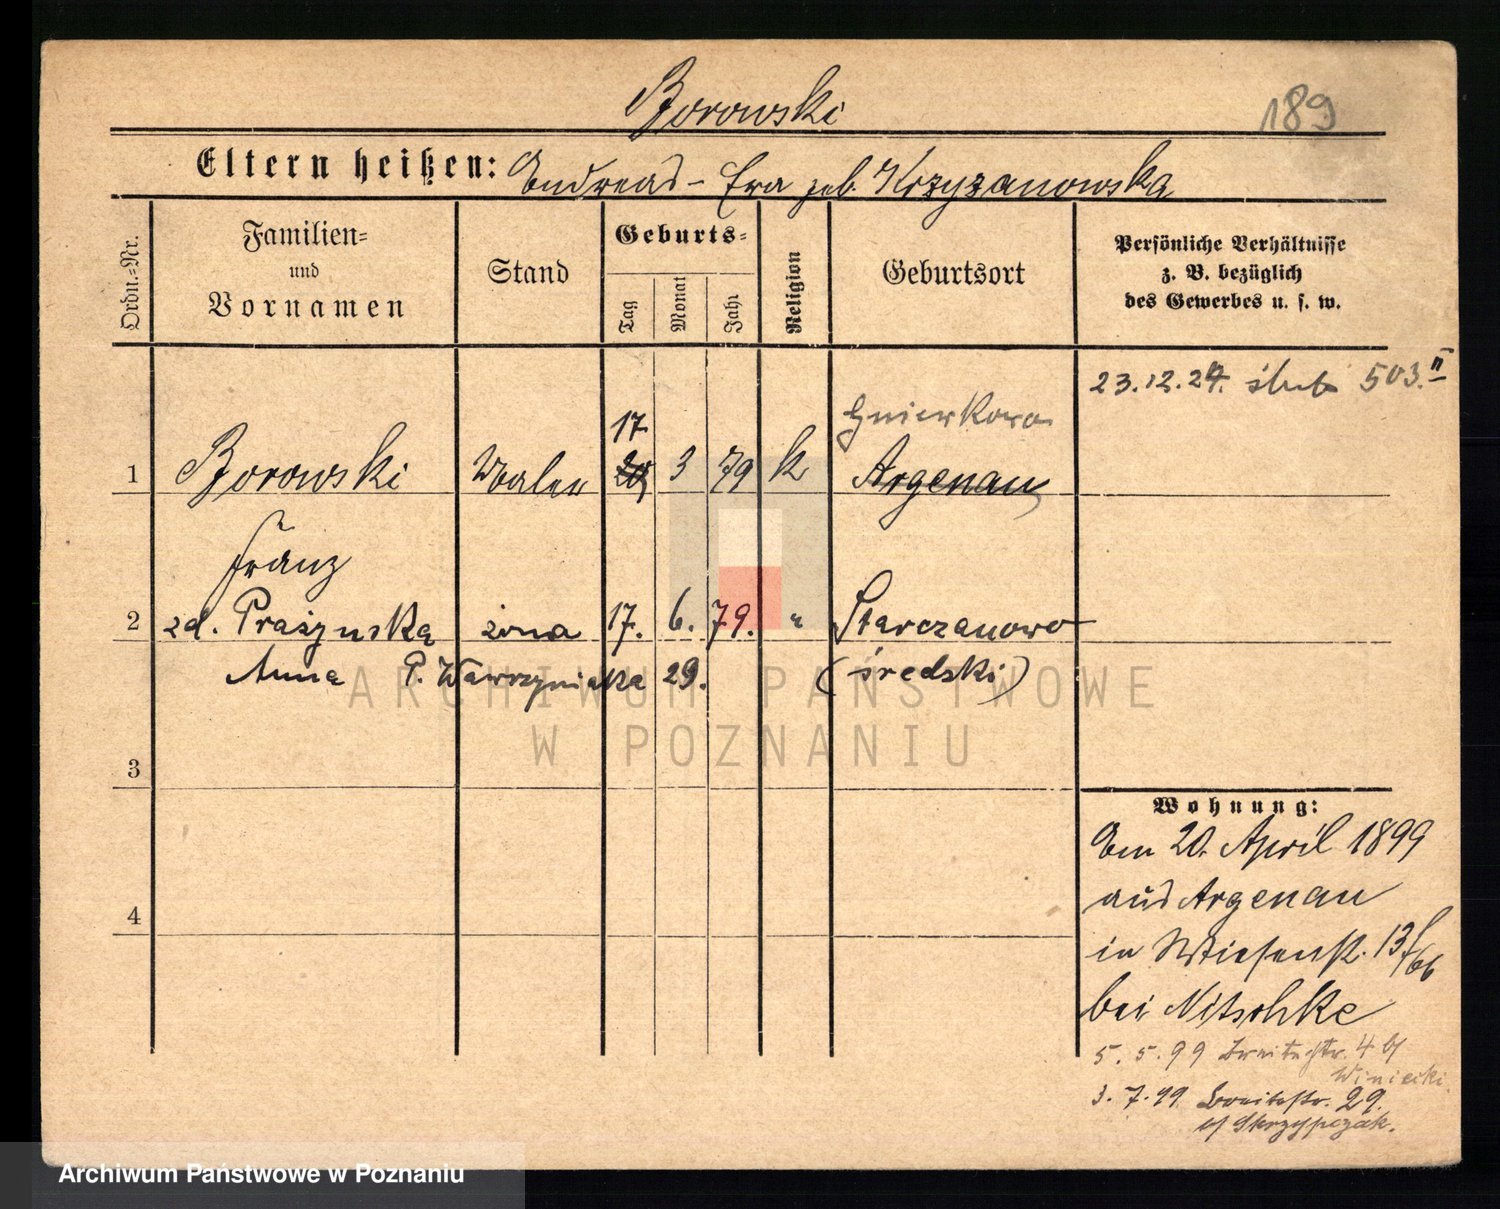 Borowski
189
Eltern heißen: Andreas - Eva geb. Krzyzanowska
Ordn.-Nr.
Familien-
und
Vornamen
Stand
Geburts-
Tag
Monat
Jahr
Religion
Geburtsort
Persönliche Verhältnisse
z. B. bezüglich
des Gewerbes u. s. w.
23.12.24. ślub 503.II
Gniewkowo
17
1 Borowski Maler 20 3 79 k Argenau
Franz
2 zd. Prażyńska żona 17. 6. 79. " Starczanowo
Anna P. Wawrzyniaka 29. (średzki)
ARCHIWUM PAŃSTWOWE
W POZNANIU
3
4
Wohnung:
Am 20. April 1899
aus Argenau
in Wiesenstr. 13/66
bei Nitschke
5. 5. 99 Breitestr. 4 b/
Winiecki
3. 7. 99 Breitestr. 29.
b/ Skrzypczak.
Archiwum Państwowe w Poznaniu